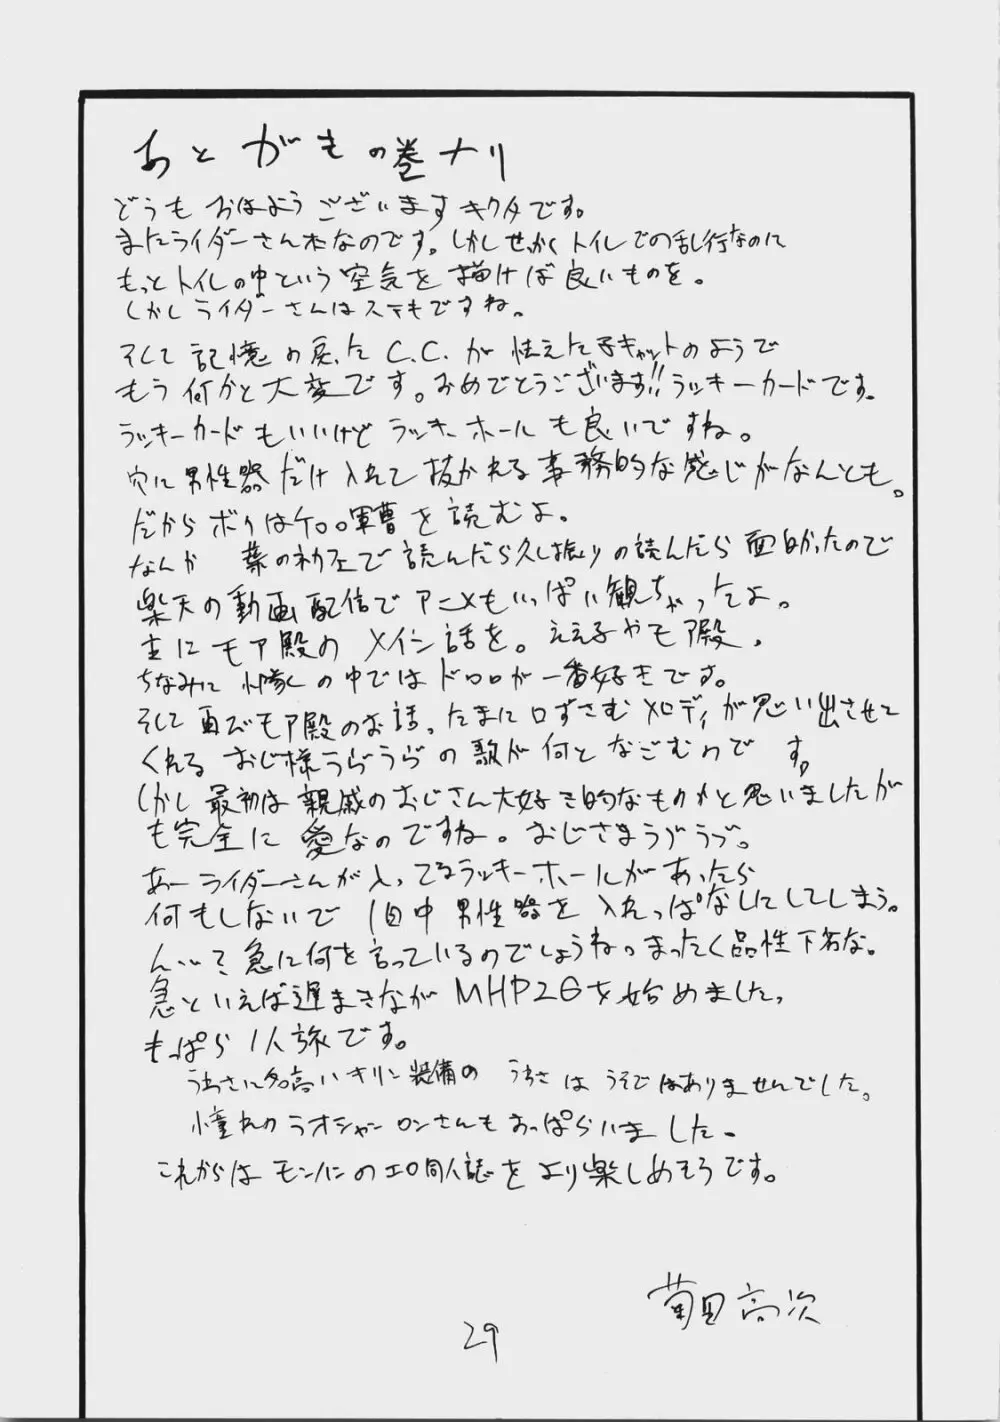 あとがきの巻ナリ
どうもおはようございますキクタです。
またライダーさん本なのです。しかしせっかくトイレでの乱行なのに
もっとトイレの中という空気を描けば良いものを。
しかしライダーさんはステキですね。
そして記憶の戻ったC.C.が怯えた子キャットのようで
もう何かと大変です。おめでとうございます!!ラッキーカードです。
ラッキーカードもいいけどラッキーホールも良いですね。
穴に男性器だけ入れて抜かれる事務的な感じがなんとも。
だからボクはケロロ軍曹を読むよ。
なんか 薬のネタ で読んだら久し振りの読んだら面白かったので
楽天の動画配信でアニメもいっぱい観ちゃったよ。
主にモア殿のメイン話を。ええ子やモア殿。
ちなみに小隊の中ではドロロが一番好きです。
そして モア殿のお話、たまに口ずさむメロディが思い出させて
くれるおじ様うらうらの歌が何となごむわです。
しかし最初は親戚のおじさん大好き的なものかと思いましたが
も完全に愛なのですね。おじさまうらうら。
あーライダーさんが入ってるラッキーホールがあったら
何もしないで1日中男性器を入れっぱなしにしてしまう。
ん…て急に何を言っているのでしょうね。まったく品性下劣な。
急といえば遅まきながMHP2Gを始めました。
もっぱら1人旅です。
うわさに名高いキリン装備のうわさはうそではありませんでした。
憧れのラオシャンロンさんもおっぱらいました。
これからはモンハンのエロ同人誌をより楽しめそうです。
菊田高次
29